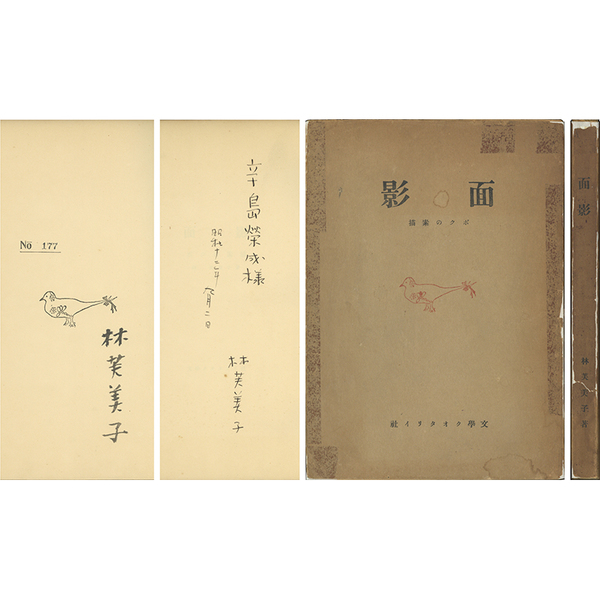 No 177
林芙美子
辛島榮成様
昭和十二年 八月二日
林芙美子
面影
ボクの素描
文學クオタリイ社
面影
林芙美子著